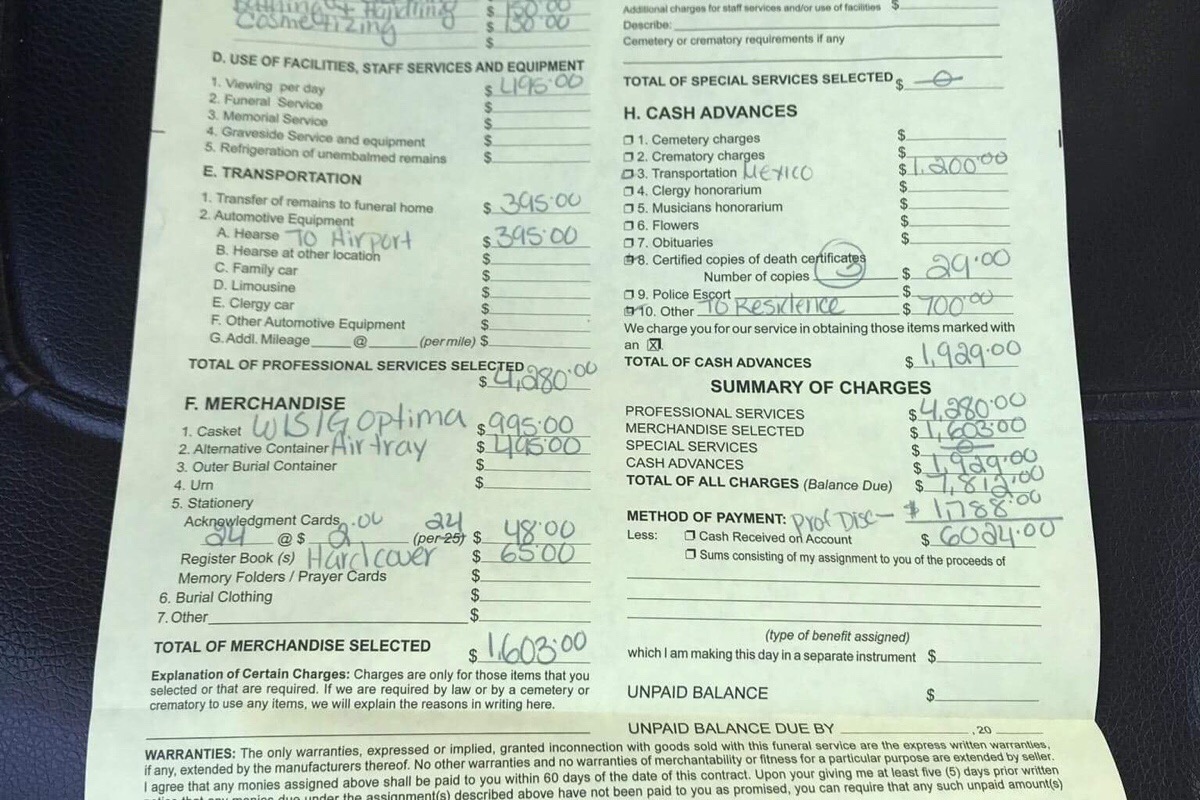 Bathing & Handling $ 150.00
Cosmetizing $ 150.00
$
D. USE OF FACILITIES, STAFF SERVICES AND EQUIPMENT
1. Viewing per day $ 495.00
2. Funeral Service $
3. Memorial Service $
4. Graveside Service and equipment $
5. Refrigeration of unembalmed remains $
E. TRANSPORTATION
1. Transfer of remains to funeral home $ 395.00
2. Automotive Equipment
A. Hearse To Airport $ 395.00
B. Hearse at other location $
C. Family car $
D. Limousine $
E. Clergy car $
F. Other Automotive Equipment $
G. Addl. Mileage @ (per mile) $
TOTAL OF PROFESSIONAL SERVICES SELECTED $ 4,280.00
F. MERCHANDISE
1. Casket Optima $ 995.00
2. Alternative Container Air tray $ 495.00
3. Outer Burial Container $
4. Urn $
5. Stationery
Acknowledgment Cards 2.00 24
24 @ $ 2 (per 25) $ 48.00
Register Book (s) Hardcover $ 65.00
Memory Folders / Prayer Cards $
6. Burial Clothing $
7. Other $
TOTAL OF MERCHANDISE SELECTED $ 1,603.00
Explanation of Certain Charges: Charges are only for those items that you
selected or that are required. If we are required by law or by a cemetery or
crematory to use any items, we will explain the reasons in writing here.
Additional charges for staff services and/or use of facilities $
Describe:
Cemetery or crematory requirements if any
TOTAL OF SPECIAL SERVICES SELECTED $ 0
H. CASH ADVANCES
1. Cemetery charges $
2. Crematory charges $
3. Transportation MEXICO $ 1,200.00
4. Clergy honorarium $
5. Musicians honorarium $
6. Flowers $
7. Obituaries $
8. Certified copies of death certificates
Number of copies 3 $ 29.00
9. Police Escort $
10. Other To Residence $ 700.00
We charge you for our service in obtaining those items marked with
an X.
TOTAL OF CASH ADVANCES $ 1,929.00
SUMMARY OF CHARGES
PROFESSIONAL SERVICES $ 4,280.00
MERCHANDISE SELECTED $ 1,603.00
SPECIAL SERVICES $ 0
CASH ADVANCES $ 1,929.00
TOTAL OF ALL CHARGES (Balance Due) $ 7,812.00
METHOD OF PAYMENT: Prof Disc - $ 1,788.00
Less: Cash Received on Account $ 6024.00
Sums consisting of my assignment to you of the proceeds of
(type of benefit assigned)
which I am making this day in a separate instrument $
UNPAID BALANCE $
UNPAID BALANCE DUE BY , 20
WARRANTIES: The only warranties, expressed or implied, granted inconnection with goods sold with this funeral service are the express written warranties,
if any, extended by the manufacturers thereof. No other warranties and no warranties of merchantability or fitness for a particular purpose are extended by seller.
I agree that any monies assigned above shall be paid to you within 60 days of the date of this contract. Upon your giving me at least five (5) days prior written
under the assignment(s) described above have not been paid to you as promised, you can require that any such unpaid amount(s)